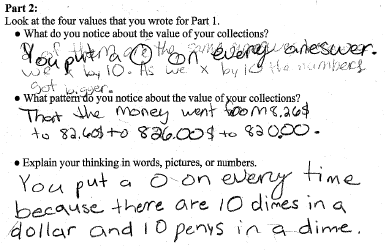 Part 2:
Look at the four values that you wrote for Part 1.
• What do you notice about the value of your collections?
You put a 0 on every answer.
we x by 10. As we x by 10 the numbers
got bigger.
• What pattern do you notice about the value of your collections?
That the money went
to 82.60$ to 826.00$ to
• Explain your thinking in words, pictures, or numbers.
You put a 0 on every time
because there are 10 dimes in a
dollar and 10 penys in a dime.